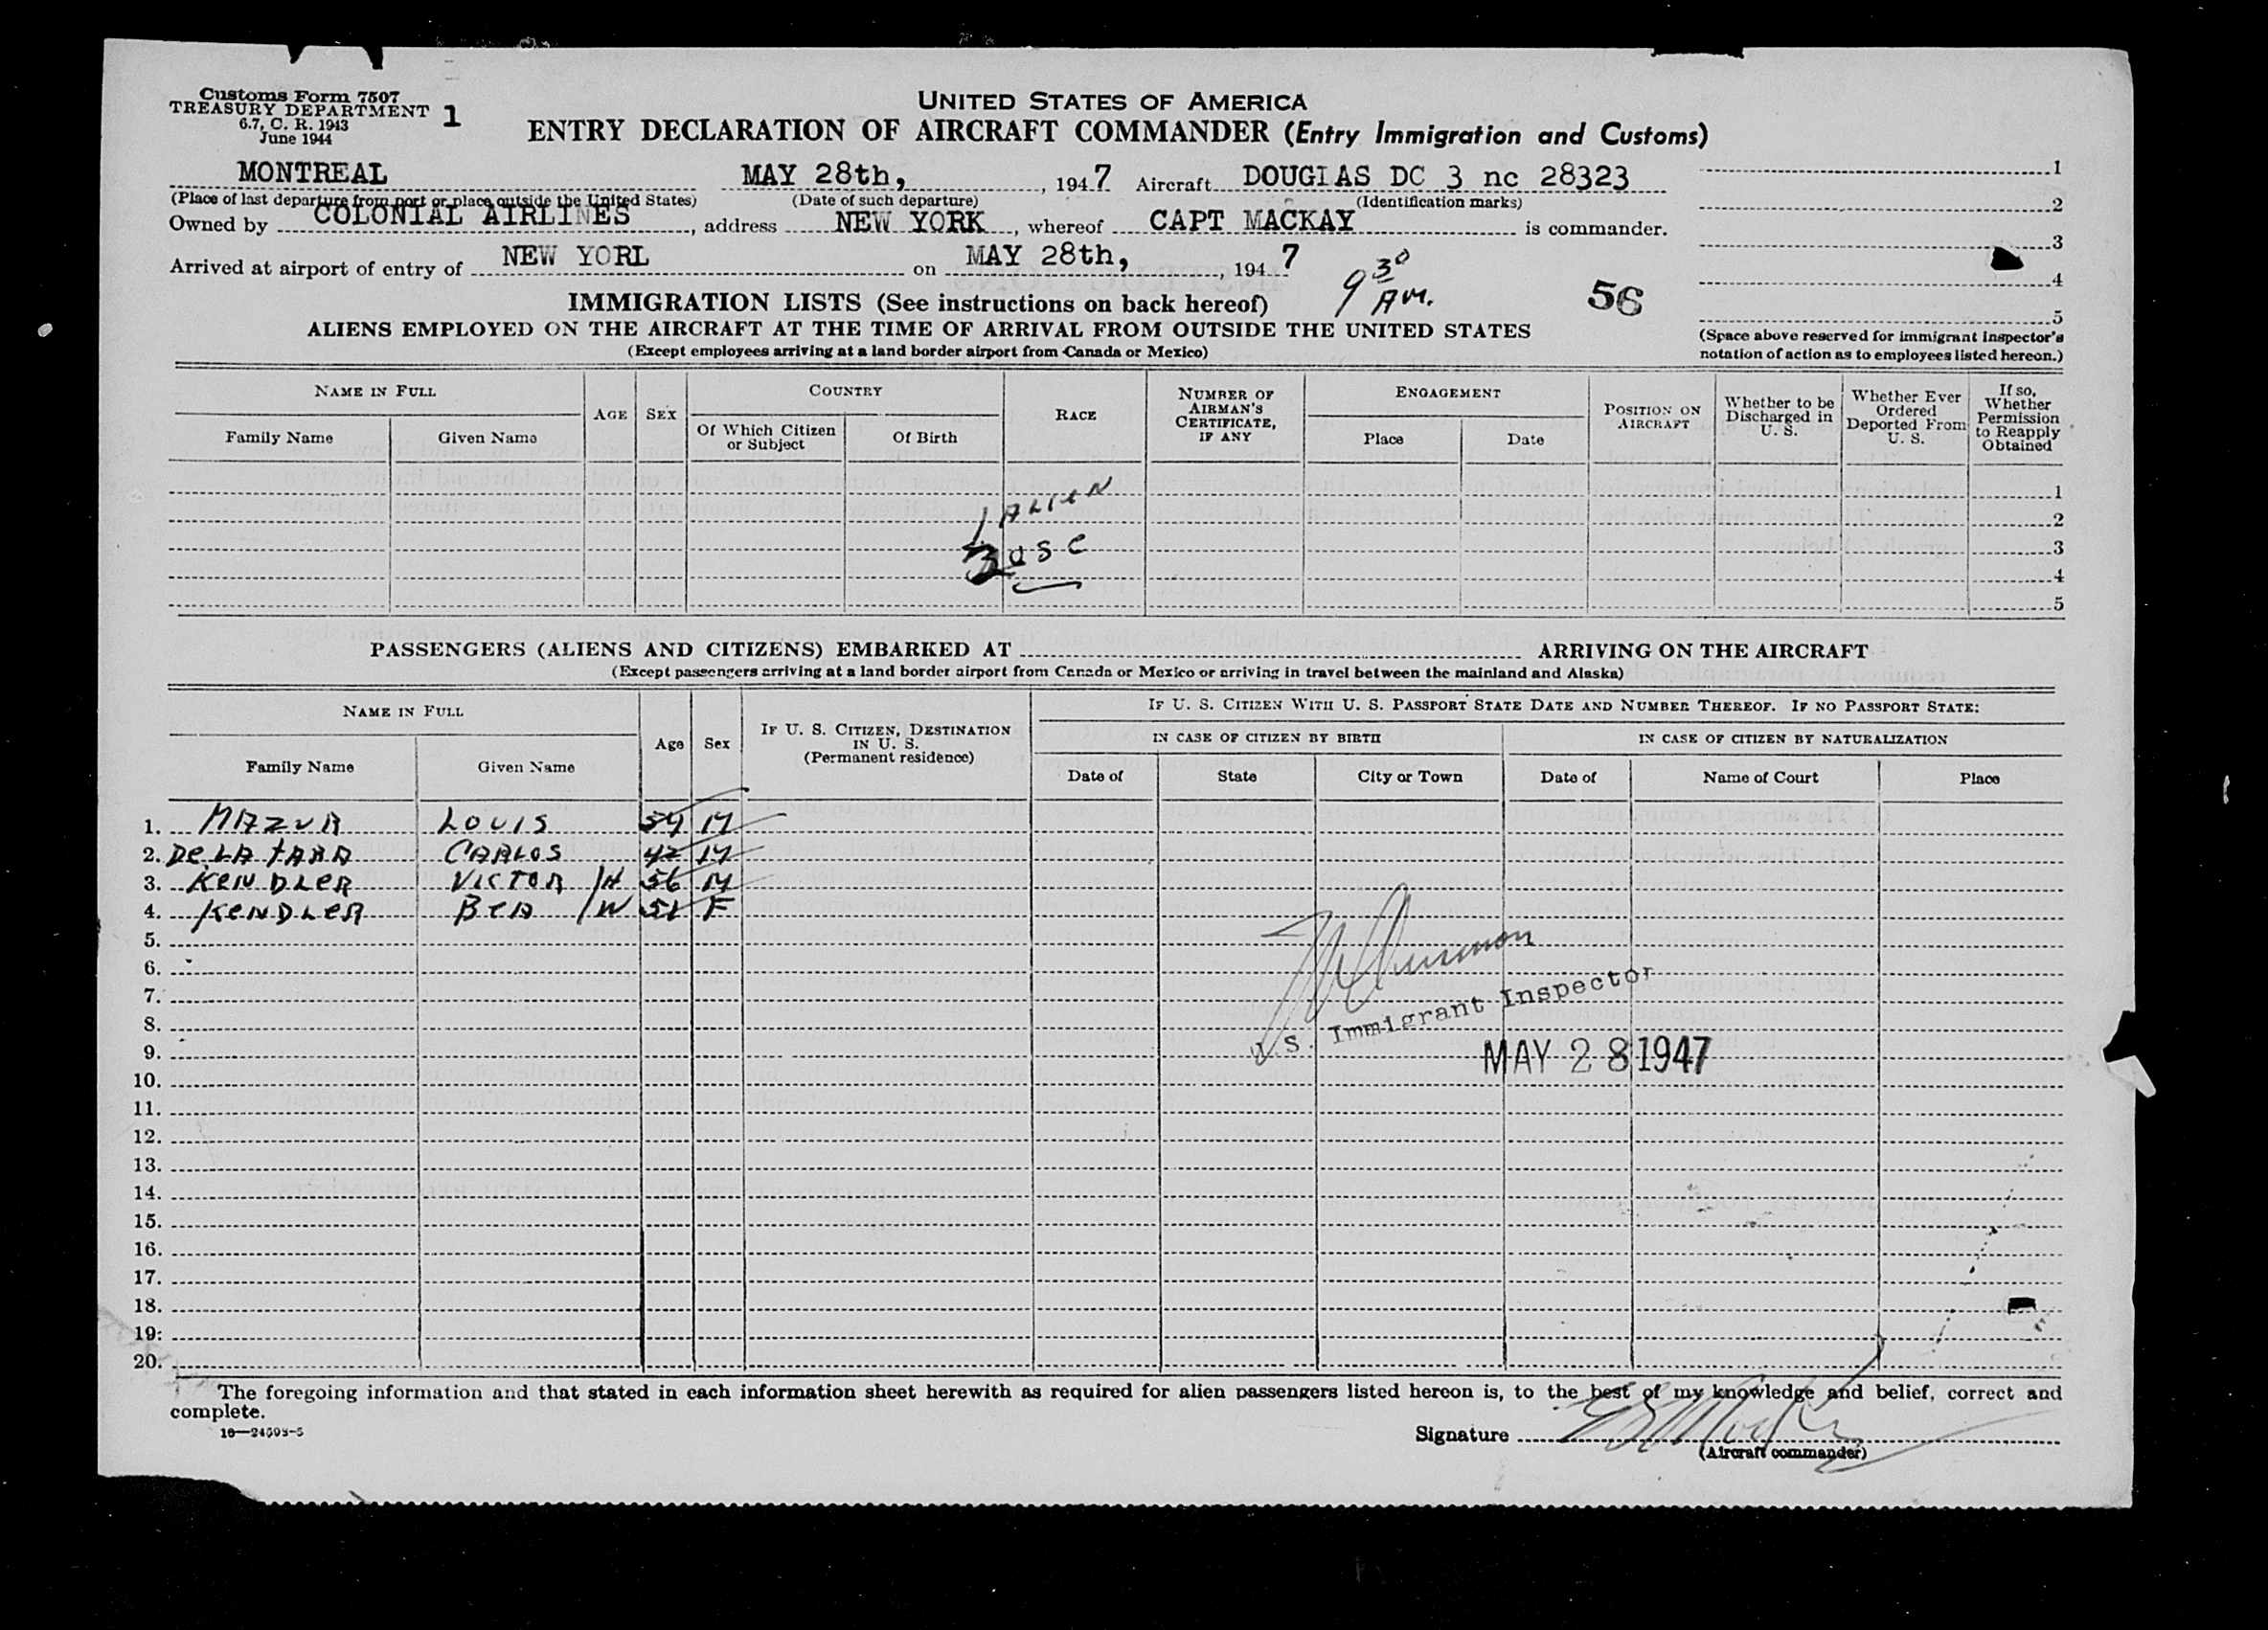 Customs Form 7507
TREASURY DEPARTMENT
6.7, C. R. 1943
June 1944
1
UNITED STATES OF AMERICA
ENTRY DECLARATION OF AIRCRAFT COMMANDER (Entry Immigration and Customs)
MONTREAL MAY 28th, , 1947 Aircraft DOUGLAS DC 3 nc 28323
(Place of last departure from port or place outside the United States) (Date of such departure) (Identification marks)
Owned by COLONIAL AIRLINES , address NEW YORK , whereof CAPT MACKAY is commander.
Arrived at airport of entry of NEW YORL on MAY 28th, , 1947
9 30 AM.
56
1
2
3
4
5
(Space above reserved for immigrant inspector's
notation of action as to employees listed hereon.)
IMMIGRATION LISTS (See instructions on back hereof)
ALIENS EMPLOYED ON THE AIRCRAFT AT THE TIME OF ARRIVAL FROM OUTSIDE THE UNITED STATES
(Except employees arriving at a land border airport from Canada or Mexico)
NAME IN FULL
Family Name Given Name
AGE SEX
COUNTRY
Of Which Citizen or Subject
Of Birth
RACE
NUMBER OF AIRMAN'S CERTIFICATE, IF ANY
ENGAGEMENT
Place Date
POSITION ON AIRCRAFT
Whether to be Discharged in U. S.
Whether Ever Ordered Deported From U. S.
If so, Whether Permission to Reapply Obtained
1
2
3
4
5
1 ALIEN
3 USC
PASSENGERS (ALIENS AND CITIZENS) EMBARKED AT ARRIVING ON THE AIRCRAFT
(Except passengers arriving at a land border airport from Canada or Mexico or arriving in travel between the mainland and Alaska)
NAME IN FULL
Family Name Given Name
Age Sex
IF U. S. CITIZEN, DESTINATION IN U. S.
(Permanent residence)
IF U. S. CITIZEN WITH U. S. PASSPORT STATE DATE AND NUMBER THEREOF. IF NO PASSPORT STATE:
IN CASE OF CITIZEN BY BIRTH IN CASE OF CITIZEN BY NATURALIZATION
Date of State City or Town Date of Name of Court Place
1. MAZUR LOUIS 54 M
2. DE LA CARLOS 42 M
3. KENDLER VICTOR /H 56 M
4. KENDLER BEA /W 51 F
5.
6.
7.
8.
9.
10.
11.
12.
13.
14.
15.
16.
17.
18.
19.
20.
U.S. Immigrant Inspector
MAY 28 1947
The foregoing information and that stated in each information sheet herewith as required for alien passengers listed hereon is, to the best of my knowledge and belief, correct and
complete.
16—24598-5
Signature
(Aircraft commander)